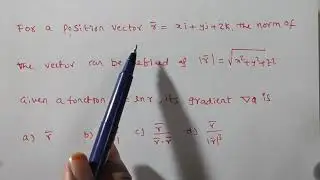 For a position vector r̄ = xi + yj + zk, the norm of
the vector can be defined of |r̄| = √x²+y²+z².
Given a function = ln r, its gradient ∇a is
a) r̄ b) c) r̄/r̄·r̄ d) r̄/|r̄|³